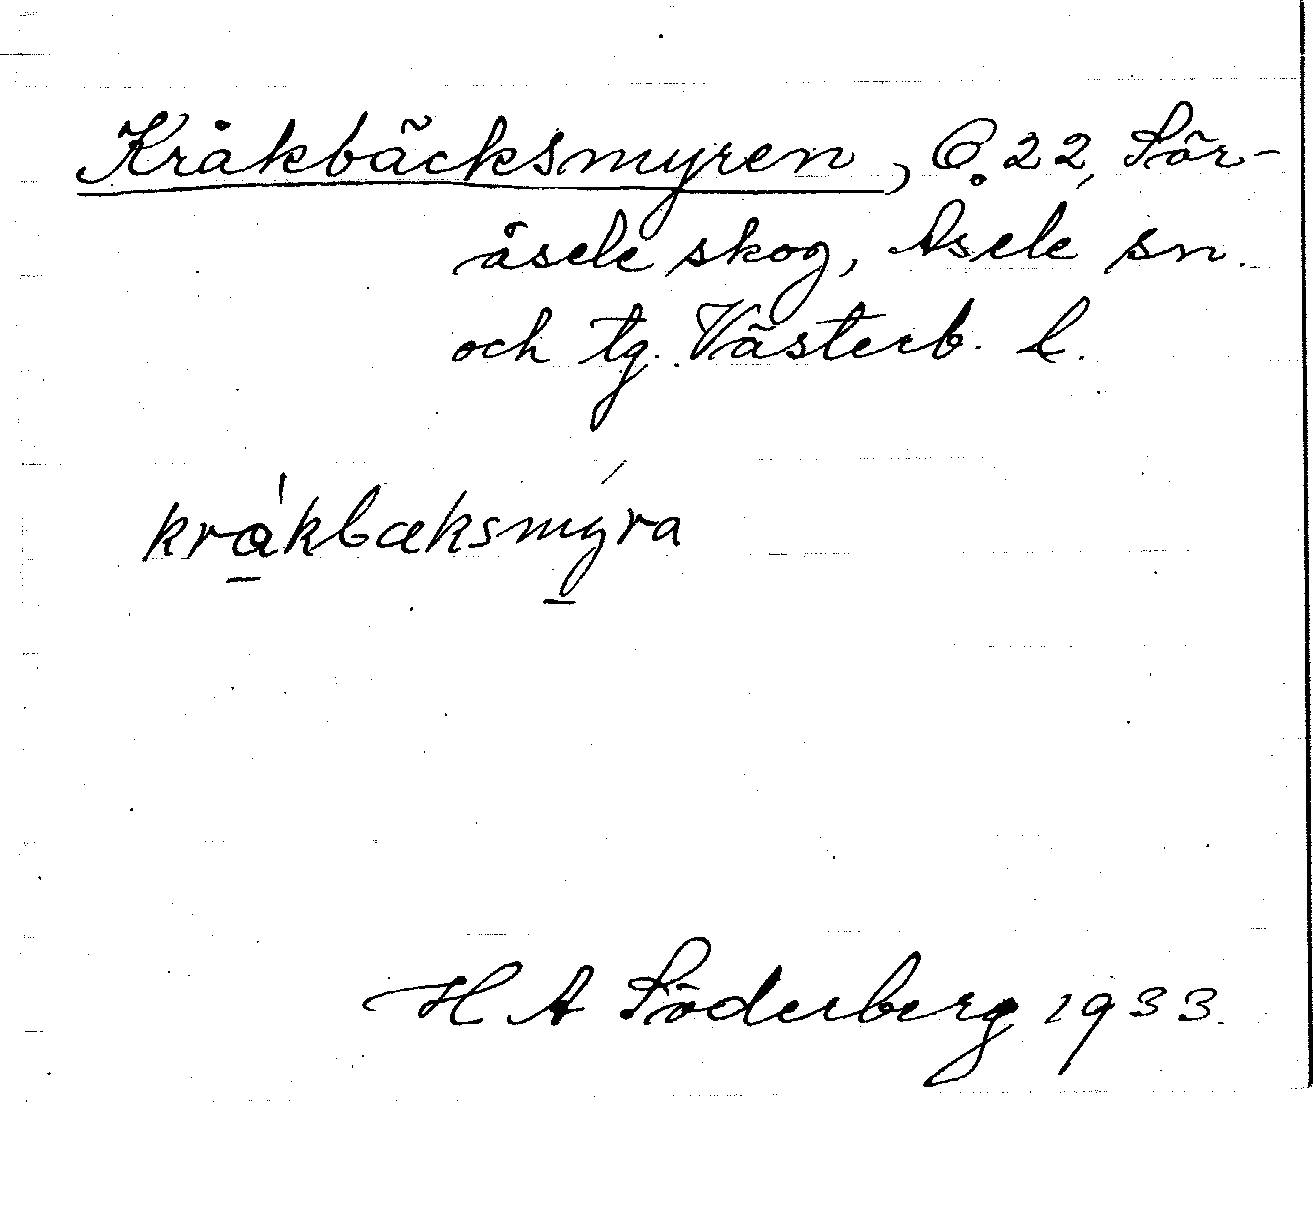 Kråkbäcksmyren, C. 22, Sör-
åsele skog, Åsele sn.
och tg. Västerb. l.
kråkbæksmyra
H A Söderberg 1933.